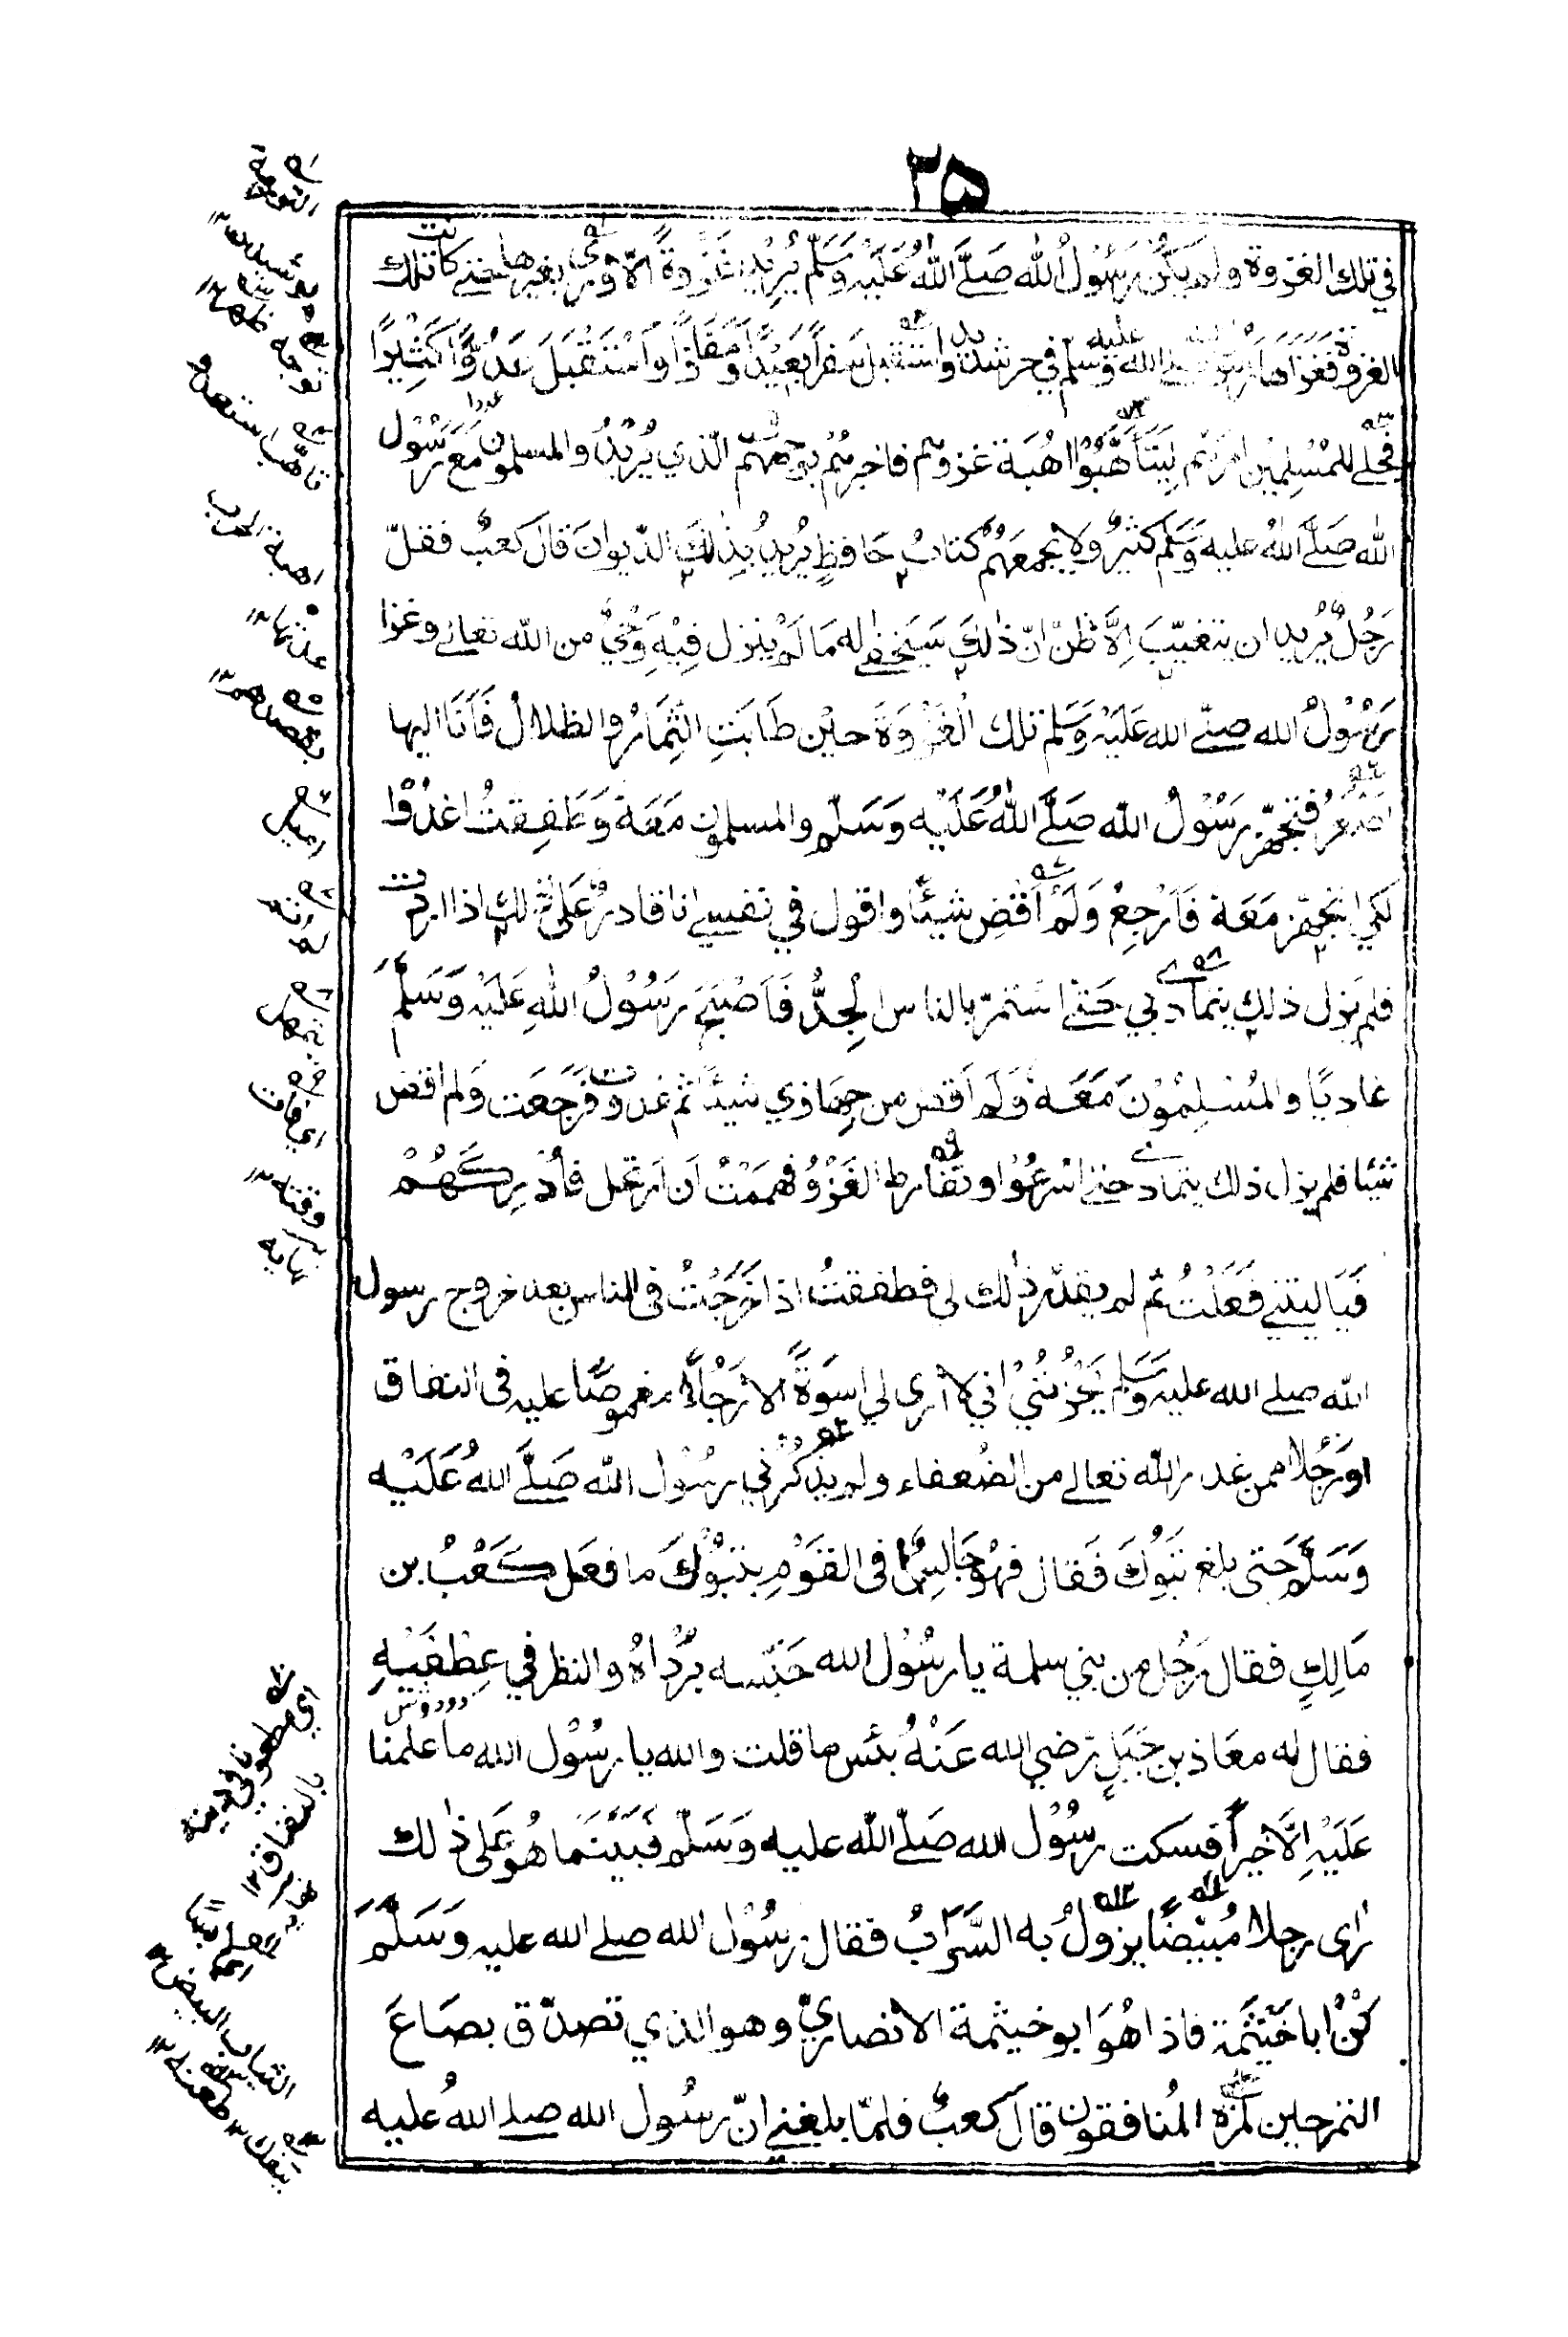 ٢٥
في تلك الغزوة ولم يكن رَسُوْلُ الله صَلَّے اللهُ عَلَيْهِ وَسَلَّمَ يُرِيْدُ غَزْوَةً الّا وَرّي بغيرها حتى كانت تلك
الغزوة فغزاها رَسُوْلُ الله صلے الله عليه وَسلّم في حر شديد واستقبل سَفراً بَعِيْداً وَمَفَازاً وَاسْتَقْبَلَ عَدُوًّا كَثِيْرًا
فجلّے للمُسْلِمِيْنَ امرَهُم لِيَتَأَهَّبُوْا اهُبَة غزوهم فاخبرهُم بوجهِهِم الّذي يُرِيْدُ والمسلمون مَعَ رَسُوْلِ
الله صَلَّے اللهُ عليه وَسَلَّم كَثِيرٌ ولا يجمعَهُم كتابٌ حَافظٍ يُرِيدُ بِذٰلِكَ الدّيوانَ قالَ كعبٌ فقلّ
رَجُلٌ يُرِيد ان يتغيّبَ اِلَّا ظنّ انّ ذٰلِكَ سَيَخفٰے له مَا لَمْ ينزل فِيْهِ وَحْيٌ من الله تعالے وغزا
رَسُوْلُ الله صلّے الله عَلَيْهِ وَسَلم تلك الْغَزْوَةَ حيْن طَابَتِ الثِّمَارُ والظلالُ فَاَنَا اليها
اَصْعَرُ فتجَهّز رَسُوْلُ الله صَلَّے اللهُ عَلَيْه وَسَلّم والمسلمون مَعَهُ وَطَفِقتُ اغدُوْا
لكَي اتجهّز مَعَهُ فَاَرْجِعُ وَلَمْ اَقْضِ شيْئًا واقول في نفسي انا قادرٌ عَلى ذلك اذا اردت
فلم يزل ذلك يتمادٰے بي حَتّٰے اسْتمرّ بالناس الْجِدُّ فَاَصْبَحَ رَسُوْلُ اللهِ عَلَيْهِ وَسَلَّمَ
غاديًا والمُسْلِمُوْنَ مَعَهُ وَلَم اَقض من جِهَازي شيئًا ثم غدوت فَرَجَعَت وَلم اقض
شيئا فلم يزل ذلك يتمادے حتى اسْرعُوْا وتفارط الغَزْوُ فهممْتُ اَن اَرتحل فاُدْرِكَهُمْ
فَيَا ليتني فَعَلْتُ ثم لم يقدّر ذٰلك لي فطفقتُ اذا خَرَجْتُ فى الناس بعد خروج رسول
الله صلے الله عليه وَسَلم يَحْزُنُنِيْ اني لا أرى لي اسوَةً الا رَجُلًا مغموصًا عليه فى النفاق
اورَجُلا ممن عذر الله تعالے من الضُعفاء ولم يذكُرْني رسُوْل الله صَلَّے اللهُ عَلَيْه
وَسَلَّم حَتى بلغ تَبُوْكَ فَقال فهُوَ جَالِسٌ فى القَوْمِ بتَبُوْكَ ما فعَل كَعْبُ بن
مَالِكٍ فقال رَجُل من بني سلمة يا رسُوْل الله حَبَسه بُرْدَاهُ والنظر في عِطْفَيْهِ
فقال له معَاذ بن جَبَلٍ رّضي الله عَنْهُ بئس ما قلت والله يا رسُوْل الله ما علمنا
عَلَيْهِ اِلَّا خيراً فسكت رسُوْل الله صَلّے الله عليه وَسَلّم فَبَيْنَمَا هُوَ عَلى ذٰلك
رٰاى رجلا مُبَيِّضًا يزولُ به السَّرَابُ فقال رسُوْل الله صلے الله عليه وَسَلَّمَ
كُنْ ابا خَيْثَمَة فاذا هُوَ ابو خيثمة الانصاريّ وهو الذي تصدّق بصَاعَ
التمر حين لمزه المُنافقون قال كعبٌ فلمّا بلغني انّ رسُول الله صلے اللهُ عليه
التورية
تأهب استعد
اهبة الحرب
عدتها ١٢
بقصدهم ١٢
اميل
اي فات
وقته ١٢
نهايه
اي مطعونا في دينه
بالنفاق